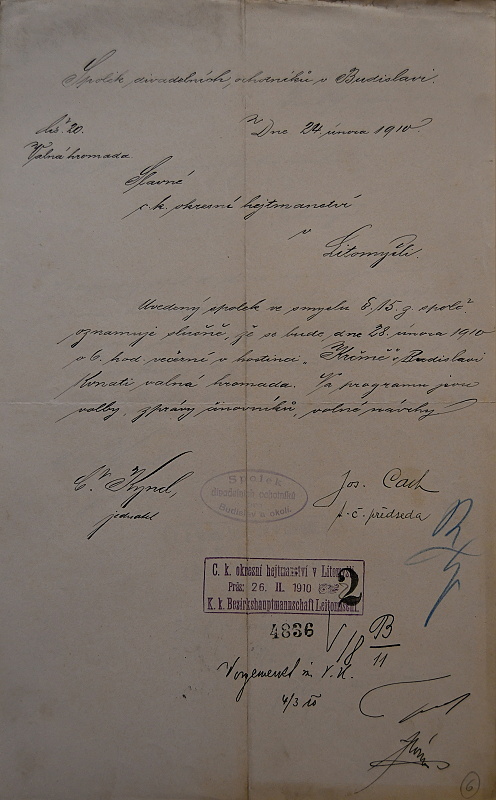 Spolek divadelních ochotníků v Budislavi.
čís. 20.
Dne 24. února 1910.
Valná hromada
Slavné
c. k. okresní hejtmanství
v
Litomyšli.
Uvedený spolek ve smyslu §. 15. z. spolč.
oznamuje slušně, že se bude dne 28. února 1910
o 6. hod. večerní v hostinci „Krčmě" v Budislavi
konati valná hromada. Na programu jsou
volby, zprávy činovníků, volné návrhy
Kyncl,
jednatel
Spolek
divadelních ochotníků
Budislav a okolí.
Jos. Cach
t. č. předseda
C. k. okresní hejtmanství v Litomyšli
Präs: 26. II. 1910
2
K. k. Bezirkshauptmannschaft Leitomischl.
4836
18 B
11
Vorgemerkt im V. K.
4/3
6